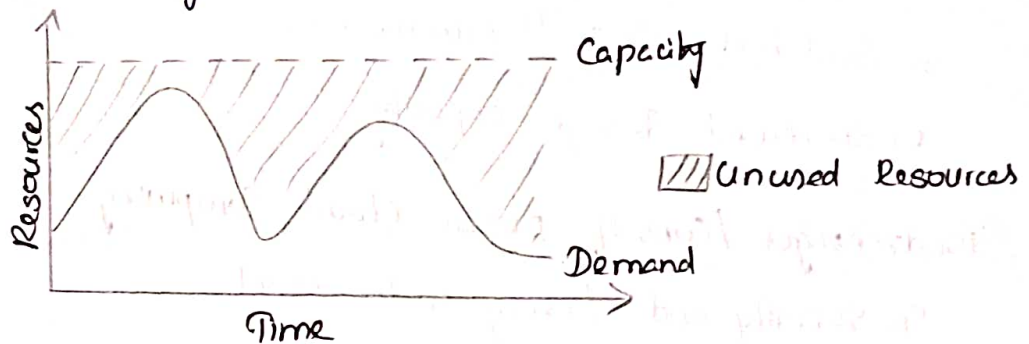 Capacity
Resources
Unused Resources
Demand
Time